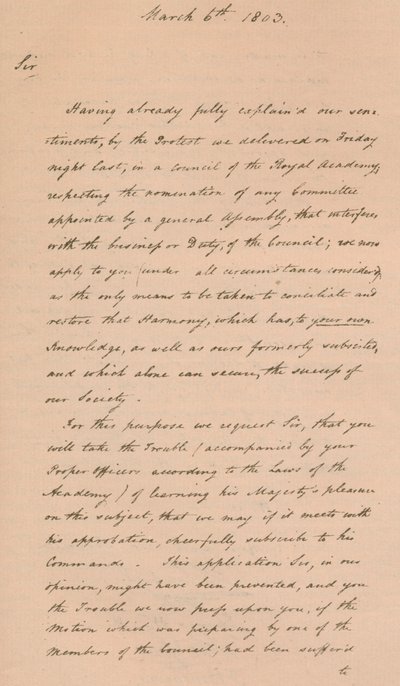 March 6th. 1803.
Sir
Having already fully explain'd our sen-
timents, by the Protest we delivered on Friday
night last, in a Council of the Royal Academy,
respecting the nomination of any Committee
appointed by a general Assembly, that interferes
with the business or Duty, of the Council; we now
apply to you (under all circumstances consider'd)
as the only means to be taken to conciliate and
restore that Harmony, which has, to your own
Knowledge, as well as ours formerly subsisted,
and which alone can secure, the success of
our Society.
For this purpose we request Sir, that you
will take the Trouble (accompanied by your
Proper Officers according to the Laws of the
Academy) of learning his Majesty's pleasure
on this subject, that we may if it meets with
his approbation, chearfully subscribe to his
Commands. This application Sir, in our
opinion, might have been prevented, and you
the Trouble we now press upon you, if the
Motion which was preparing by one of the
Members of the Council; had been suffer'd
to